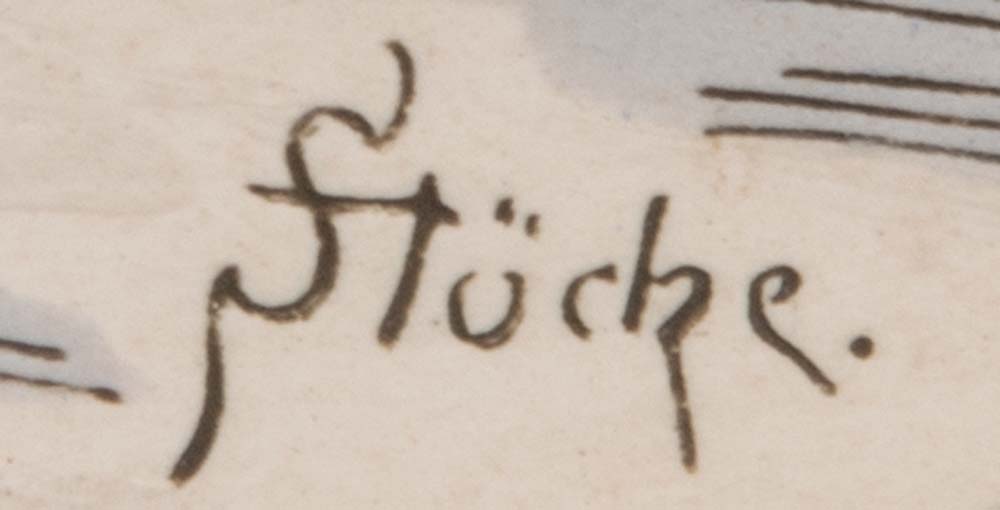 Stücke.